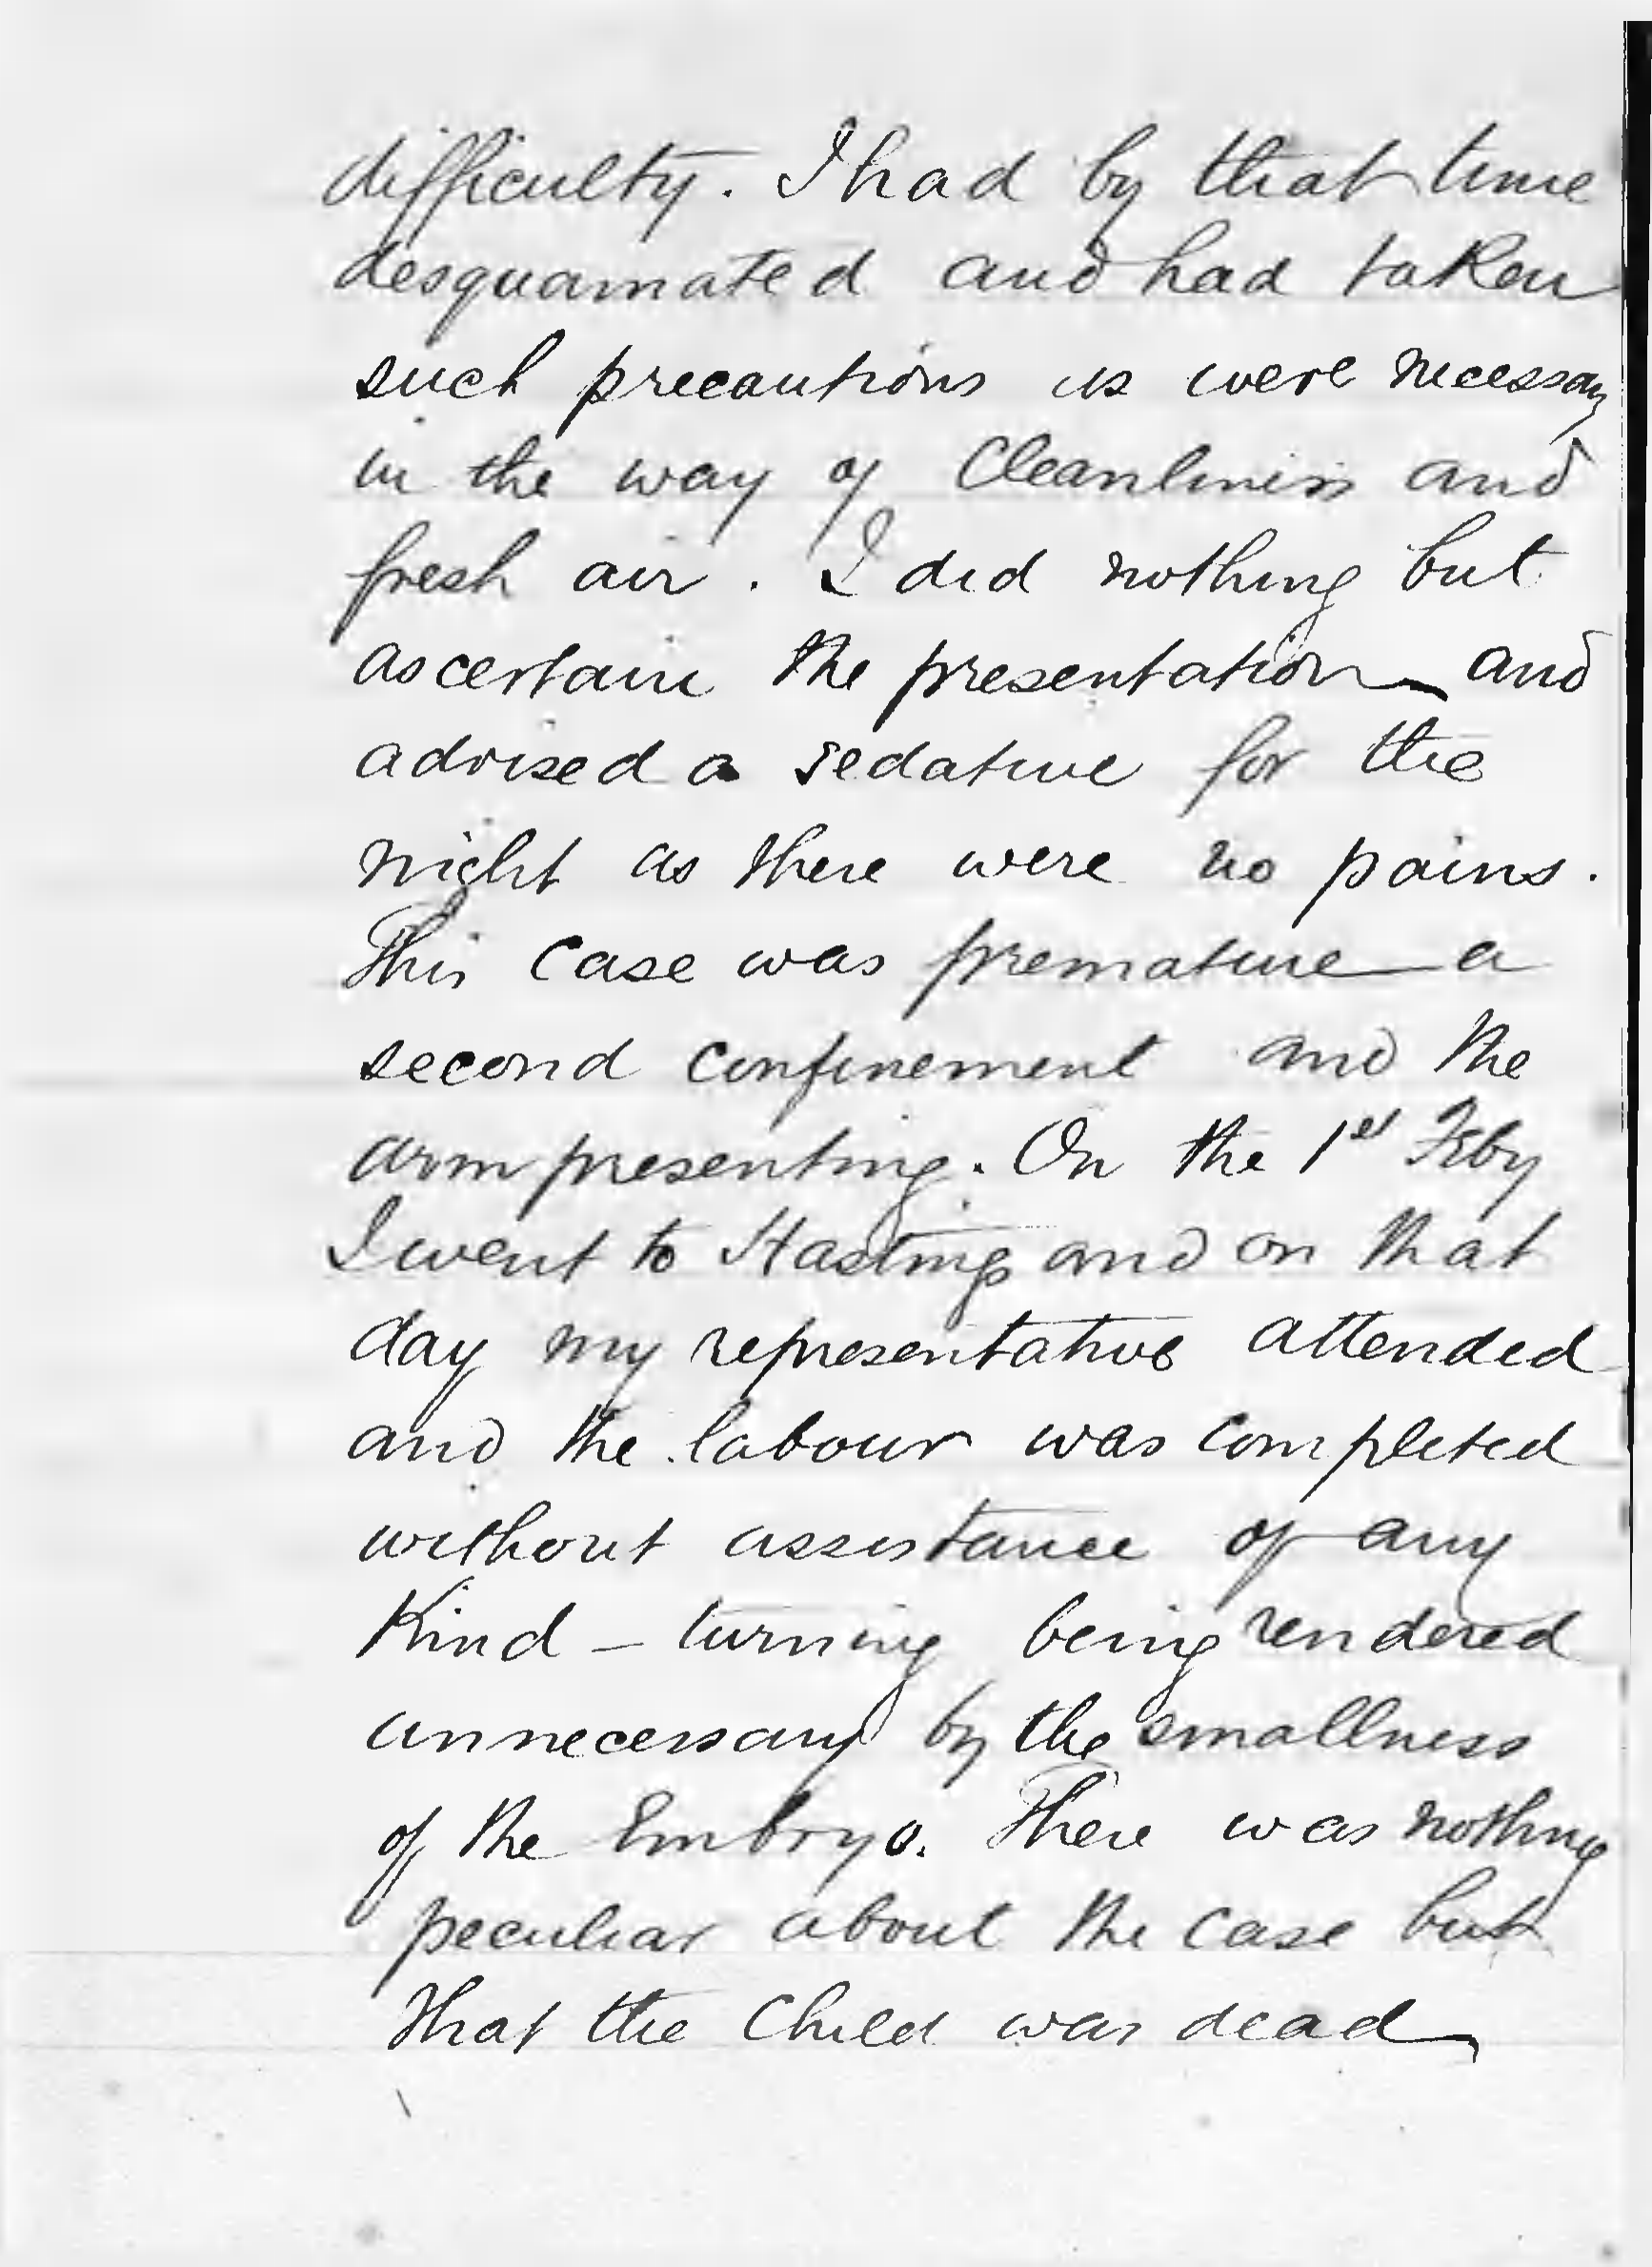 difficulty. I had by that time
desquamated and had taken
such precautions as were necessary
in the way of Cleanliness and
fresh air. I did nothing but
ascertain the presentation and
advised a sedative for the
night as there were no pains.
This case was premature a
second confinement and the
arm presenting. On the 1st Feby
I went to Hastings and on that
day my representative attended
and the labour was completed
without assistance of any
Kind - turning being rendered
unnecessary by the smallness
of the Embryo. There was nothing
peculiar about the case but
that the Child was dead